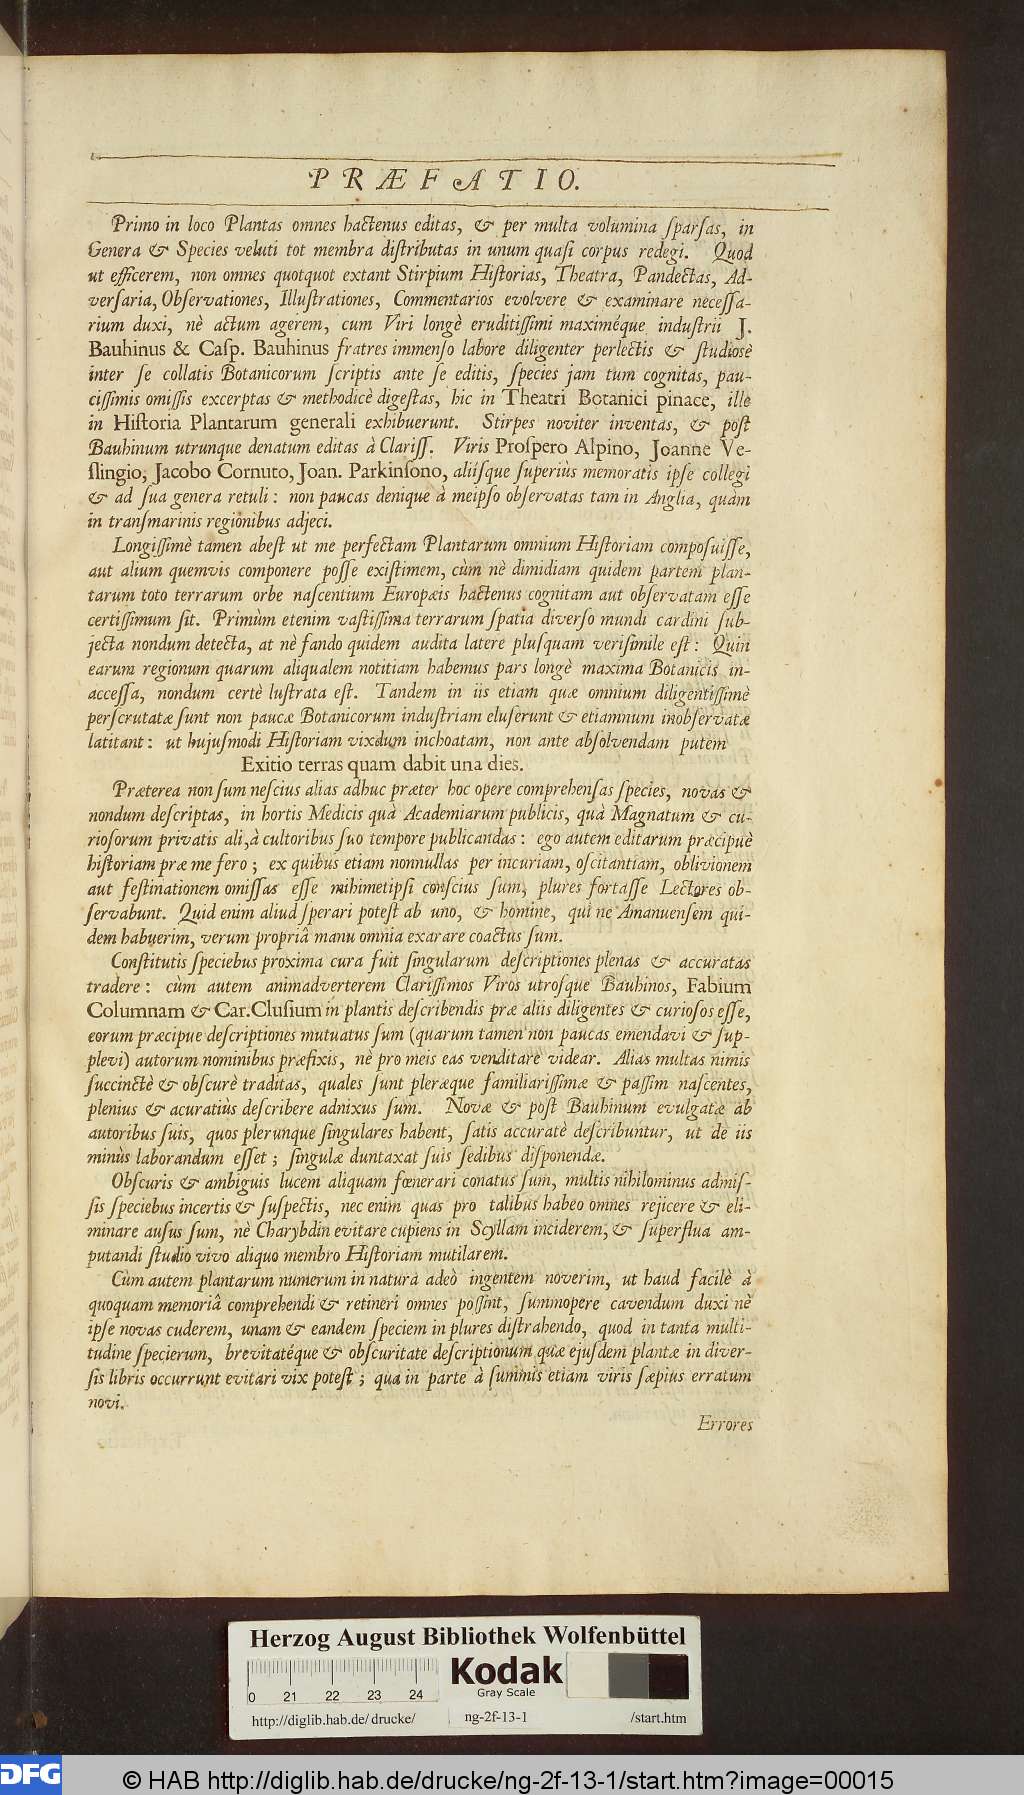 PRÆFATIO.
Primo in loco Plantas omnes hactenus editas, & per multa volumina sparsas, in
Genera & Species veluti tot membra distributas in unum quasi corpus redegi. Quod
ut efficerem, non omnes quotquot extant Stirpium Historias, Theatra, Pandectas, Ad-
versaria, Observationes, Illustrationes, Commentarios evolvere & examinare necessa-
rium duxi, nè actum agerem, cum Viri longè eruditissimi maximéque industrii J.
Bauhinus & Casp. Bauhinus fratres immenso labore diligenter perlectis & studiosè
inter se collatis Botanicorum scriptis ante se editis, species jam tum cognitas, pau-
cissimis omissis excerptas & methodicè digestas, hic in Theatri Botanici pinace, ille
in Historia Plantarum generali exhibuerunt. Stirpes noviter inventas, & post
Bauhinum utrunque denatum editas à Clariss. Viris Prospero Alpino, Joanne Ve-
slingio, Jacobo Cornuto, Joan. Parkinsono, aliisque superiùs memoratis ipse collegi
& ad sua genera retuli: non paucas denique à meipso observatas tam in Anglia, quàm
in transmarinis regionibus adjeci.
Longissimè tamen abest ut me perfectam Plantarum omnium Historiam composuisse,
aut alium quemvis componere posse existimem, cùm nè dimidiam quidem partem plan-
tarum toto terrarum orbe nascentium Europæis hactenus cognitam aut observatam esse
certissimum sit. Primùm etenim vastissima terrarum spatia diverso mundi cardini sub-
jecta nondum detecta, at nè fando quidem audita latere plusquam verisimile est: Quin
earum regionum quarum aliqualem notitiam habemus pars longè maxima Botanicis in-
accessa, nondum certè lustrata est. Tandem in iis etiam quæ omnium diligentissimè
perscrutatæ sunt non paucæ Botanicorum industriam eluserunt & etiamnum inobservatæ
latitant: ut hujusmodi Historiam vixdum inchoatam, non ante absolvendam putem
Exitio terras quam dabit una dies.
Præterea non sum nescius alias adhuc præter hoc opere comprehensas species, novas &
nondum descriptas, in hortis Medicis quà Academiarum publicis, quà Magnatum & cu-
riosorum privatis ali, à cultoribus suo tempore publicandas: ego autem editarum præcipuè
historiam præ me fero; ex quibus etiam nonnullas per incuriam, oscitantiam, oblivionem
aut festinationem omissas esse mihimetipsi conscius sum, plures fortasse Lectores ob-
servabunt. Quid enim aliud sperari potest ab uno, & homine, qui ne Amanuensem qui-
dem habuerim, verum propriâ manu omnia exarare coactus sum.
Constitutis speciebus proxima cura fuit singularum descriptiones plenas & accuratas
tradere: cùm autem animadverterem Clarissimos Viros utrosque Bauhinos, Fabium
Columnam & Car. Clusium in plantis describendis præ aliis diligentes & curiosos esse,
eorum præcipue descriptiones mutuatus sum (quarum tamen non paucas emendavi & sup-
plevi) autorum nominibus præfixis, nè pro meis eas venditare videar. Alias multas nimis
succinctè & obscurè traditas, quales sunt pleræque familiarissimæ & passim nascentes,
plenius & acuratiùs describere adnixus sum. Novæ & post Bauhinum evulgatæ ab
autoribus suis, quos plerunque singulares habent, satis accuratè describuntur, ut de iis
minùs laborandum esset; singulæ duntaxat suis sedibus disponendæ.
Obscuris & ambiguis lucem aliquam fœnerari conatus sum, multis nihilominus admis-
sis speciebus incertis & suspectis, nec enim quas pro talibus habeo omnes rejicere & eli-
minare ausus sum, nè Charybdin evitare cupiens in Scyllam inciderem, & superflua am-
putandi studio vivo aliquo membro Historiam mutilarem.
Cùm autem plantarum numerum in natura adeò ingentem noverim, ut haud facilè à
quoquam memoriâ comprehendi & retineri omnes possint, summopere cavendum duxi nè
ipse novas cuderem, unam & eandem speciem in plures distrahendo, quod in tanta multi-
tudine specierum, brevitatéque & obscuritate descriptionum quæ ejusdem plantæ in diver-
sis libris occurrunt evitari vix potest; qua in parte à summis etiam viris sæpius erratum
novi.
Errores
Herzog August Bibliothek Wolfenbüttel
Kodak
Gray Scale
0 21 22 23 24
http://diglib.hab.de/drucke/ ng-2f-13-1 /start.htm
DFG © HAB http://diglib.hab.de/drucke/ng-2f-13-1/start.htm?image=00015